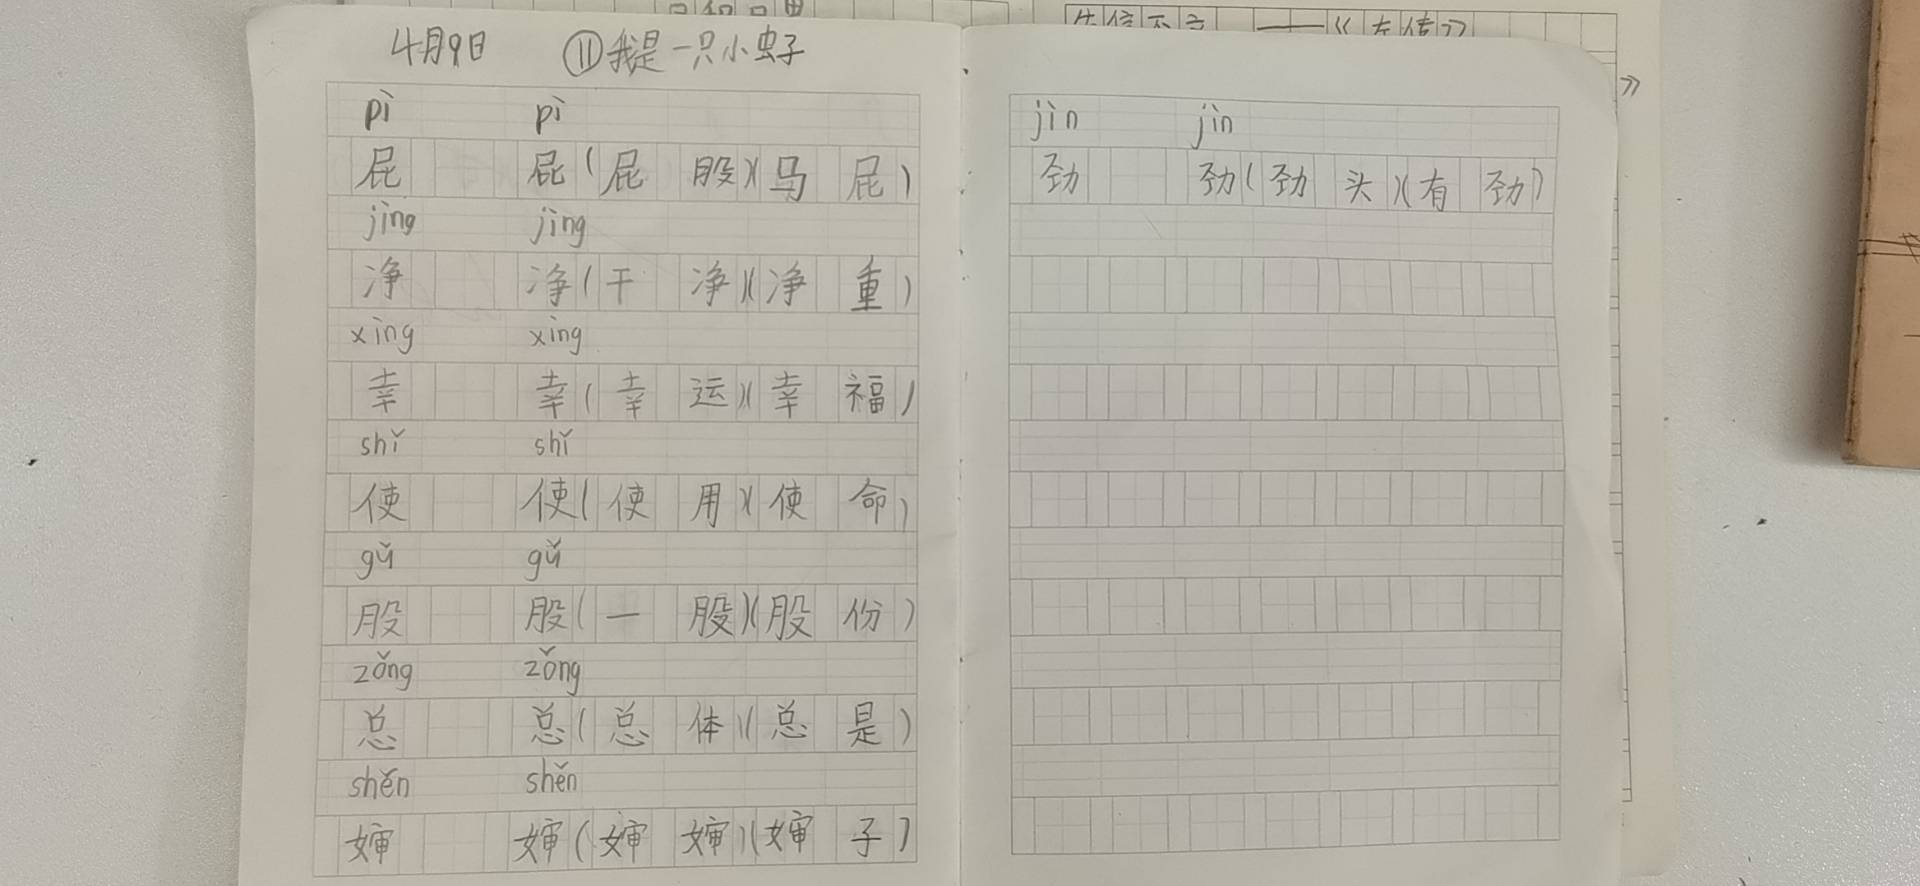 4月9日 ⑪我是一只小虫子
pì pì
屁 屁(屁股)(马屁)
jìng jìng
净 净(干净)(净重)
xìng xìng
幸 幸(幸运)(幸福)
shǐ shǐ
使 使(使用)(使命)
gǔ gǔ
股 股(一股)(股份)
zǒng zǒng
总 总(总体)(总是)
shěn shěn
婶 婶(婶婶)(婶子)
jìn jìn
劲 劲(劲头)(有劲)